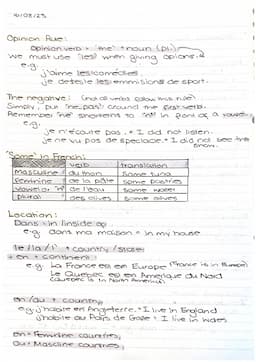 Opinion Rule:
Opinion verb + "les" + noun (pl)
We must use "les" when giving opions.
e.g.
j'aime les comédies
je deteste les emmisions de sport.
The negative: (not all verbs follow this rule)
Simply, put "ne pas" around the first verb.
Remember "ne" shortens to "n'" in front of a vowel.
e.g.
je n'écoute pas. = I did not listen.
je ne vu pas de spectacle. = I did not see the show.
"Some" in French:
verb translation
Masculine du thon some tuna
Feminine de la pâte some pastries
Vowel or "h" de l'eau some water
plural des olives some olives
Location:
Dans = in/inside
e.g. dans ma maison = in my house
le / la / l' + country / state
+ en + continent
e.g. La France est en Europe (France is in Europe)
Le Quebec est en Amérique du Nord
(Quebec is in North America)
en / au + country
e.g. j'habite en Angleterre. = I live in England
j'habite au Pays de Galle = I live in Wales
en = Feminine countries,
au = Masculine countries,